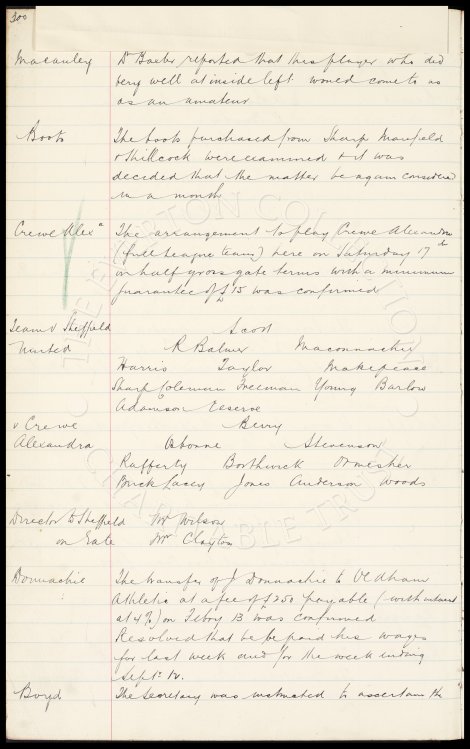 300
Macauley Dr Baxter reported that this player who did
very well at inside left would come to us
as an amateur
Boots The boots purchased from Sharp Mansfield
& Shillcock were examined & it was
decided that the matter be again considered
in a month
Crewe Alexa The arrangement to play Crewe Alexandra
(full league team) here on Saturday 17th
on half gross gate terms with a minimum
guarantee of £15 was confirmed
Team v Sheffield Scott
United R Balmer Maconnachie
Harris Taylor Makepeace
Sharp Coleman Freeman Young Barlow
Adamson Reserve
v Crewe Berry
Alexandra Osborne Stevenson
Rafferty Borthwick Ormesher
Buck Lacey Jones Anderson Woods
Director to Sheffield Mr Wilson
on Gate Mr Clayton
Donnachie The transfer of J Donnachie to Oldham
Athletic at a fee of £250 payable (with interest
at 4%) on Febry 13 was confirmed
Resolved that he be paid his wages
for last week and for the week ending
Sept
Boyd The Secretary was instructed to ascertain the
THE EVERTON COLLECTION
CHARITABLE TRUST